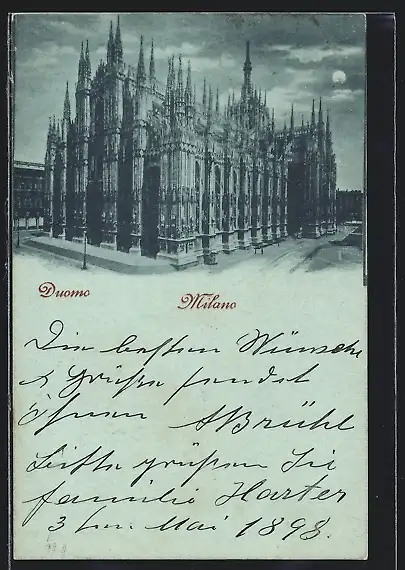 Duomo
Milano
Die besten Wünsche
& Grüße sendet
Ihnen ABrühl
Bitte grüßen Sie
familie Harter
3ten Mai 1898.